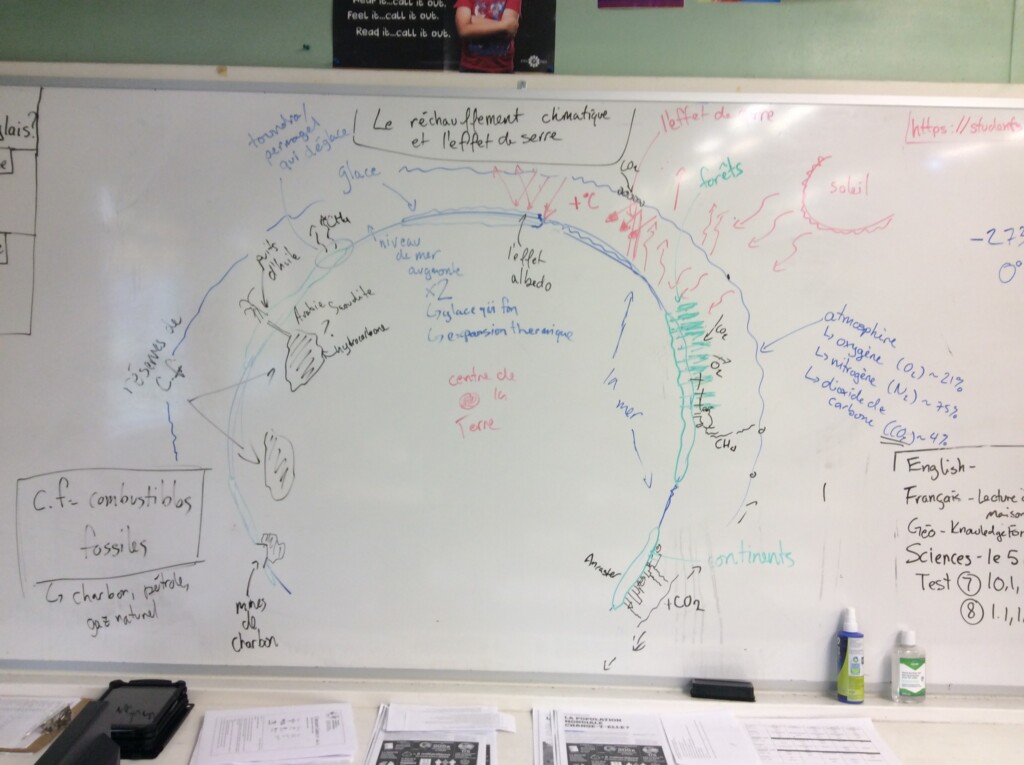 Hear it...call it out.
Feel it...call it out.
Read it...call it out.
glais?
e
Le réchauffement climatique
et l'effet de serre
l'effet de serre
https://student
toundra
pergaged
qui dégèle
glace
CO2
forêts
soleil
+°C
+CH4
puit
d'huile
niveau
de mer
augmente
x2
↳ glace qui fon
↳ expansion thermique
l'effet
albedo
-273
0°
Arabie Saoudite
?
hybrocarbone
réserves de
C.f
centre de
la
Terre
la mer
CO2
O2
CH4
atmosphère
↳ oxygène (O2) ~ 21%
↳ nitrogène (N2) ~ 75%
↳ dioxide de
carbone (CO2) ~ 4%
C.f = combustibles
fossiles
↳ charbon, pétrole,
gaz naturel
mines
de
charbon
continents
+CO2
English -
Français - Lecture
maison
Géo - Knowledge For
Sciences - le 5
Test ⑦ 10.1,
⑧ 1.1, 1.
LA POPULATION
MONDIALE
CHANGE-T-ELLE?